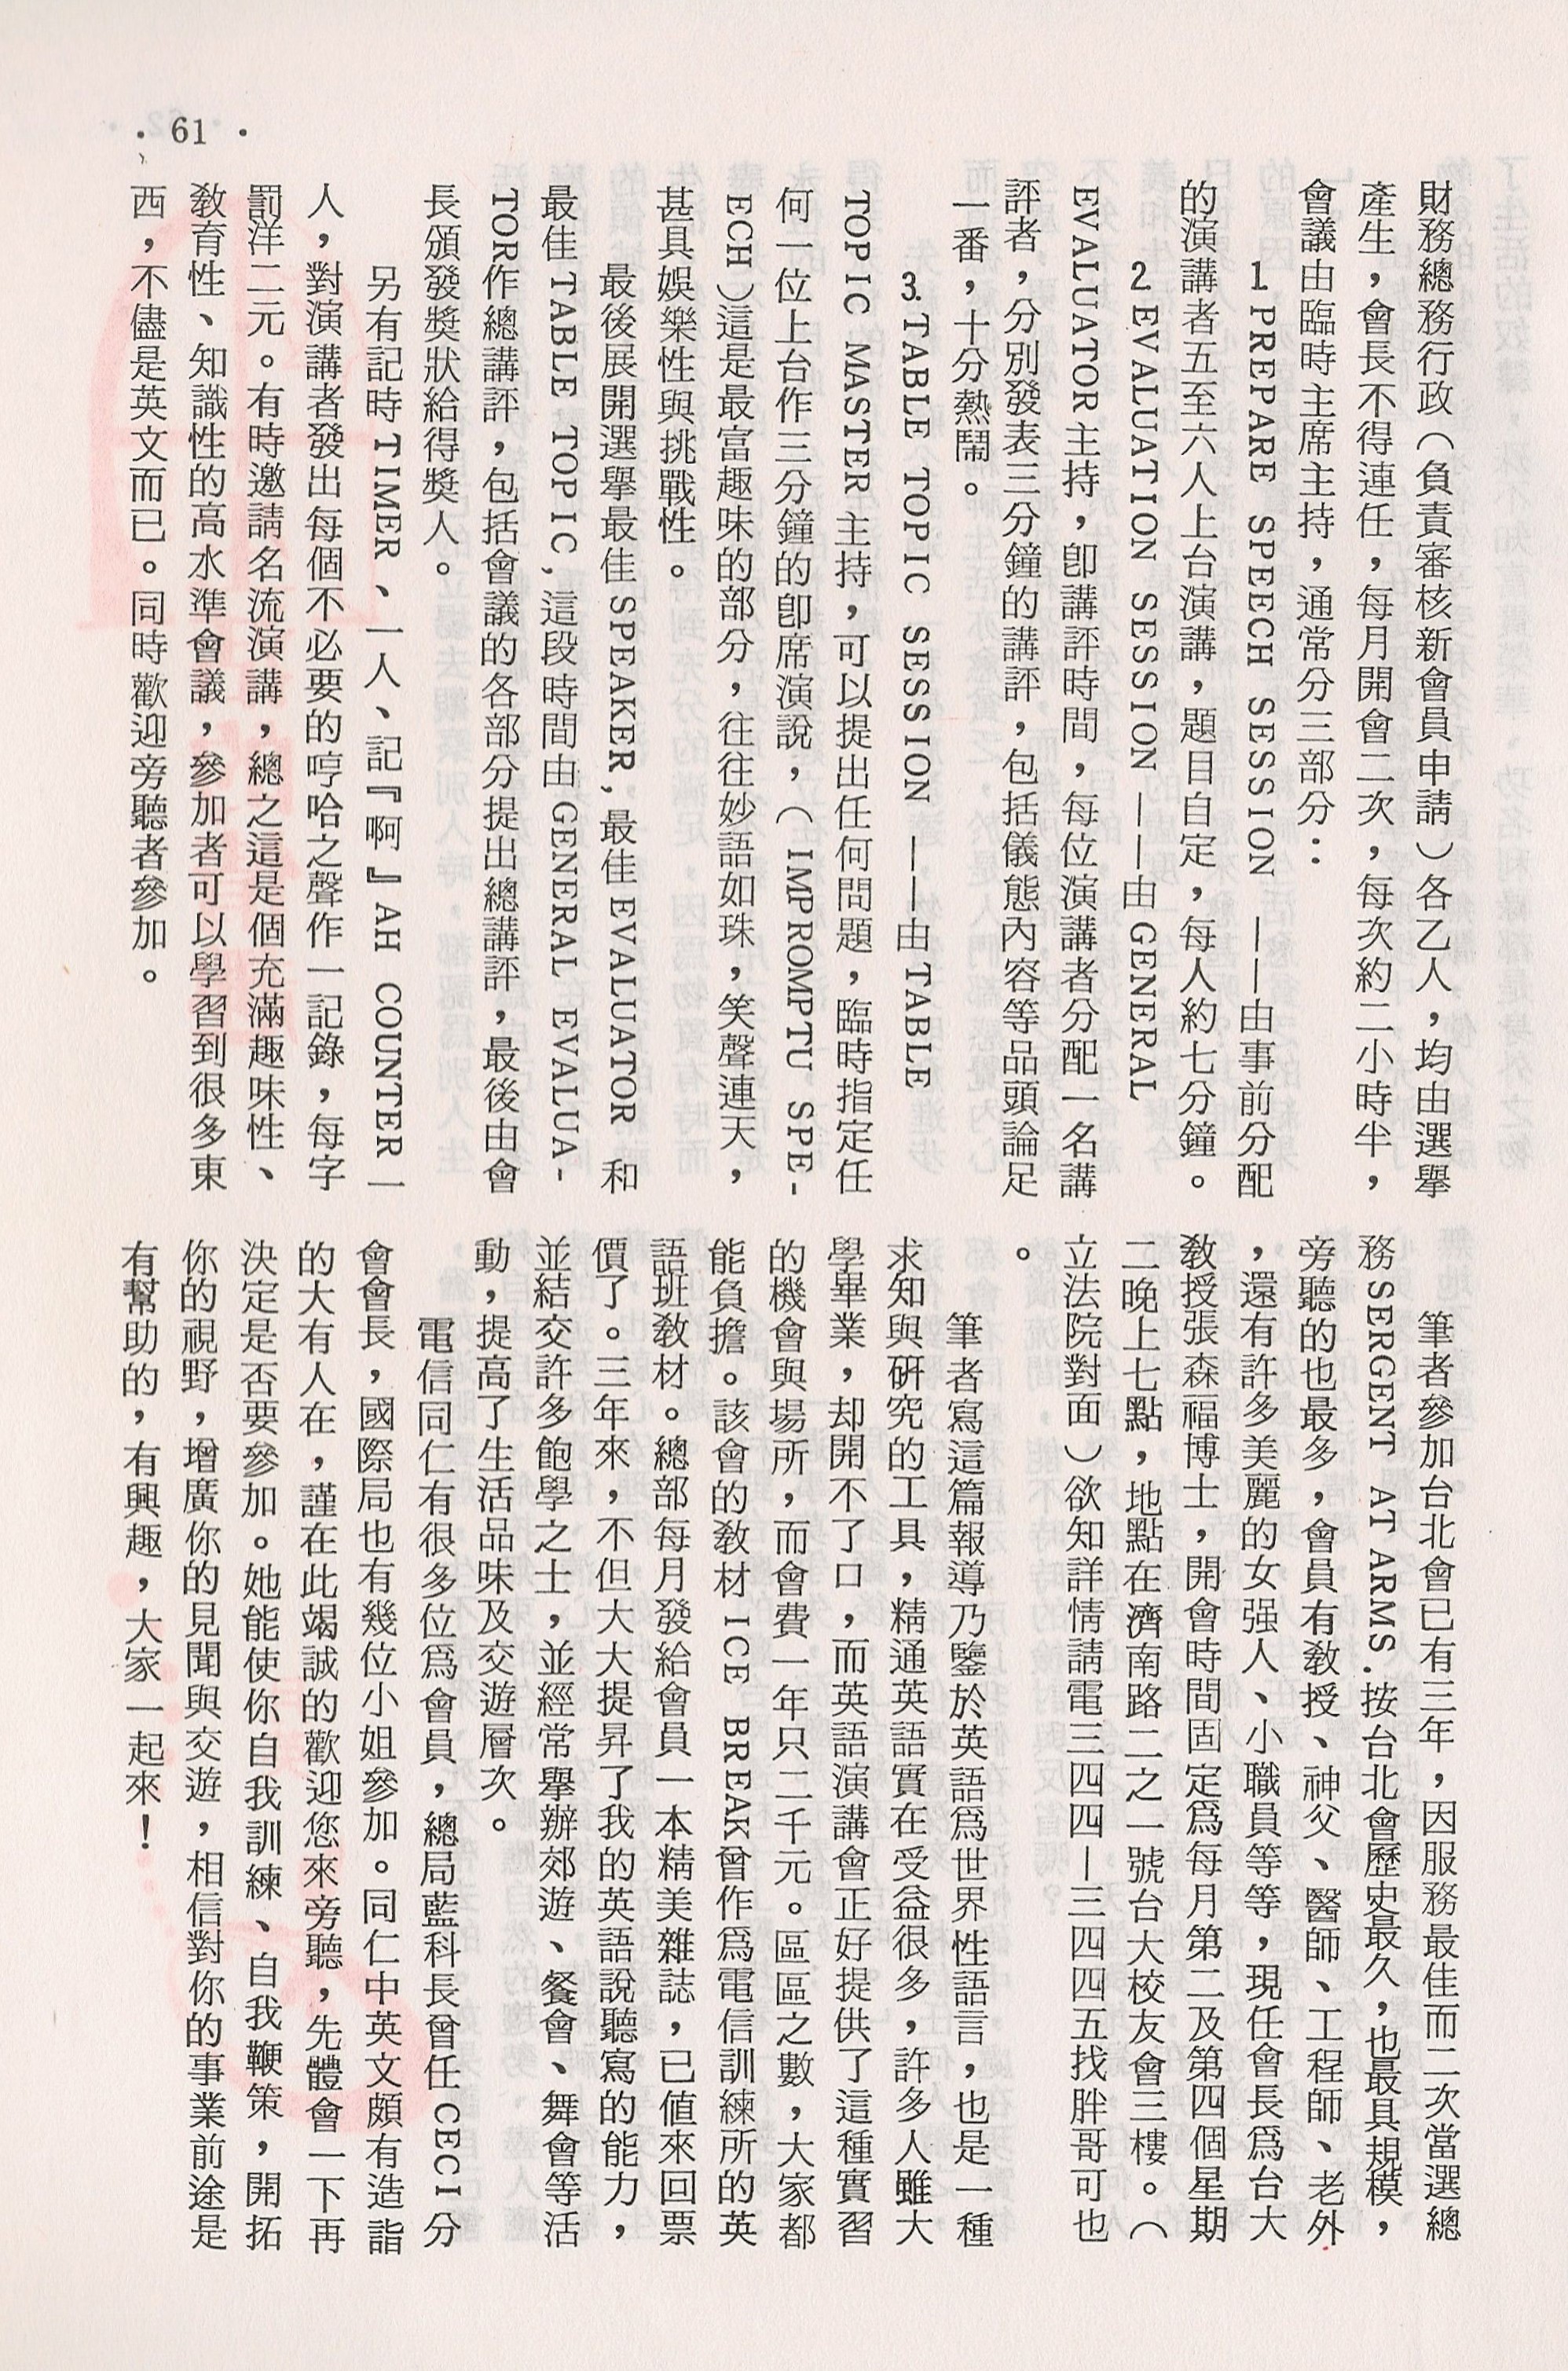 • 61 •
財務總務行政（負責審核新會員申請）各乙人，均由選擧
產生，會長不得連任，每月開會二次，每次約二小時半，
會議由臨時主席主持，通常分三部分：
1 PREPARE SPEECH SESSION ——由事前分配
的演講者五至六人上台演講，題目自定，每人約七分鐘。
2 EVALUATION SESSION ——由 GENERAL
EVALUATOR 主持，卽講評時間，每位演講者分配一名講
評者，分別發表三分鐘的講評，包括儀態內容等品頭論足
一番，十分熱鬧。
3. TABLE TOPIC SESSION ——由 TABLE
TOPIC MASTER 主持，可以提出任何問題，臨時指定任
何一位上台作三分鐘的卽席演說，（ IMPROMPTU SPE-
ECH ）這是最富趣味的部分，往往妙語如珠，笑聲連天，
甚具娛樂性與挑戰性。
最後展開選擧最佳 SPEAKER, 最佳 EVALUATOR 和
最佳 TABLE TOPIC, 這段時間由 GENERAL EVALUA-
TOR作總講評，包括會議的各部分提出總講評，最後由會
長頒發獎狀給得獎人。
另有記時 TIMER 、一人、記『啊』AH COUNTER 一
人，對演講者發出每個不必要的哼哈之聲作一記錄，每字
罰洋二元。有時邀請名流演講，總之這是個充滿趣味性、
敎育性、知識性的高水準會議，參加者可以學習到很多東
西，不儘是英文而已。同時歡迎旁聽者參加。
筆者參加台北會已有三年，因服務最佳而二次當選總
務 SERGENT AT ARMS. 按台北會歷史最久，也最具規模，
旁聽的也最多，會員有敎授、神父、醫師、工程師、老外
，還有許多美麗的女强人、小職員等等，現任會長爲台大
敎授張森福博士，開會時間固定爲每月第二及第四個星期
二晚上七點，地點在濟南路二之一號台大校友會三樓。（
立法院對面）欲知詳情請電三四四—三四四五找胖哥可也
。
筆者寫這篇報導乃鑒於英語爲世界性語言，也是一種
求知與研究的工具，精通英語實在受益很多，許多人雖大
學畢業，却開不了口，而英語演講會正好提供了這種實習
的機會與場所，而會費一年只二千元。區區之數，大家都
能負擔。該會的敎材 ICE BREAK曾作爲電信訓練所的英
語班敎材。總部每月發給會員一本精美雜誌，已値來回票
價了。三年來，不但大大提昇了我的英語說聽寫的能力，
並結交許多飽學之士，並經常擧辦郊遊、餐會、舞會等活
動，提高了生活品味及交遊層次。
電信同仁有很多位爲會員，總局藍科長曾任 CECI 分
會會長，國際局也有幾位小姐參加。同仁中英文頗有造詣
的大有人在，謹在此竭誠的歡迎您來旁聽，先體會一下再
決定是否要參加。她能使你自我訓練、自我鞭策，開拓
你的視野，增廣你的見聞與交遊，相信對你的事業前途是
有幫助的，有興趣，大家一起來！